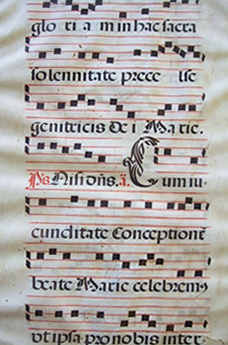 glo ri a m in hac sacra
solennitate prece lse
genitricis de i Marie.
Ps Nisi dñs. ã. Cum iu-
cunditate Conceptione
beate Marie celebrem-
vt ipsa pro nobis inter-